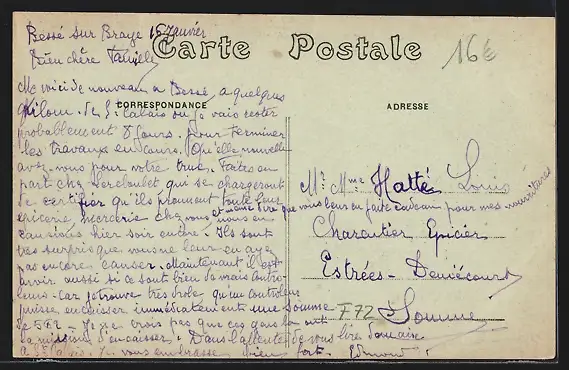 Bessé sur Braye 18 Janvier
Carte Postale
16€
Bien chère Famille
Me voici de nouveau à Bessé, a quelques
CORRESPONDANCE
ADRESSE
Kilom. de St Calais ou je vais rester
probablement 8 jours. Pour terminer
les travaux en cours. Quelle nouvelle
avez-vous pour votre truc. Faites en
part chez qui se chargeront
de certifier qu'ils prennent toute leur
épicerie, mercerie chez vous et même dire que vous leur en faite cadeau pour mes nourritures
nous en
causions hier soir encore. Ils sont
pas surpris que vous ne leur en ayez
pas encore causer. Maintenant il est
avoir aussi si ce sont bien de vrais contro-
leurs. Car je trouve très drole qu'un controleur
puisse encaisser immédiatement une somme
de 582 - Je ne crois pas que ces gens la ont
la mission d'encaisser. Dans l'attente de vous lire demain
a St Calais Je vous embrasse bien fort. Edmond
Mr. Mme Hatté Louis
Charcutier Epicier
Estrées-Deniécourt
F72 Somme